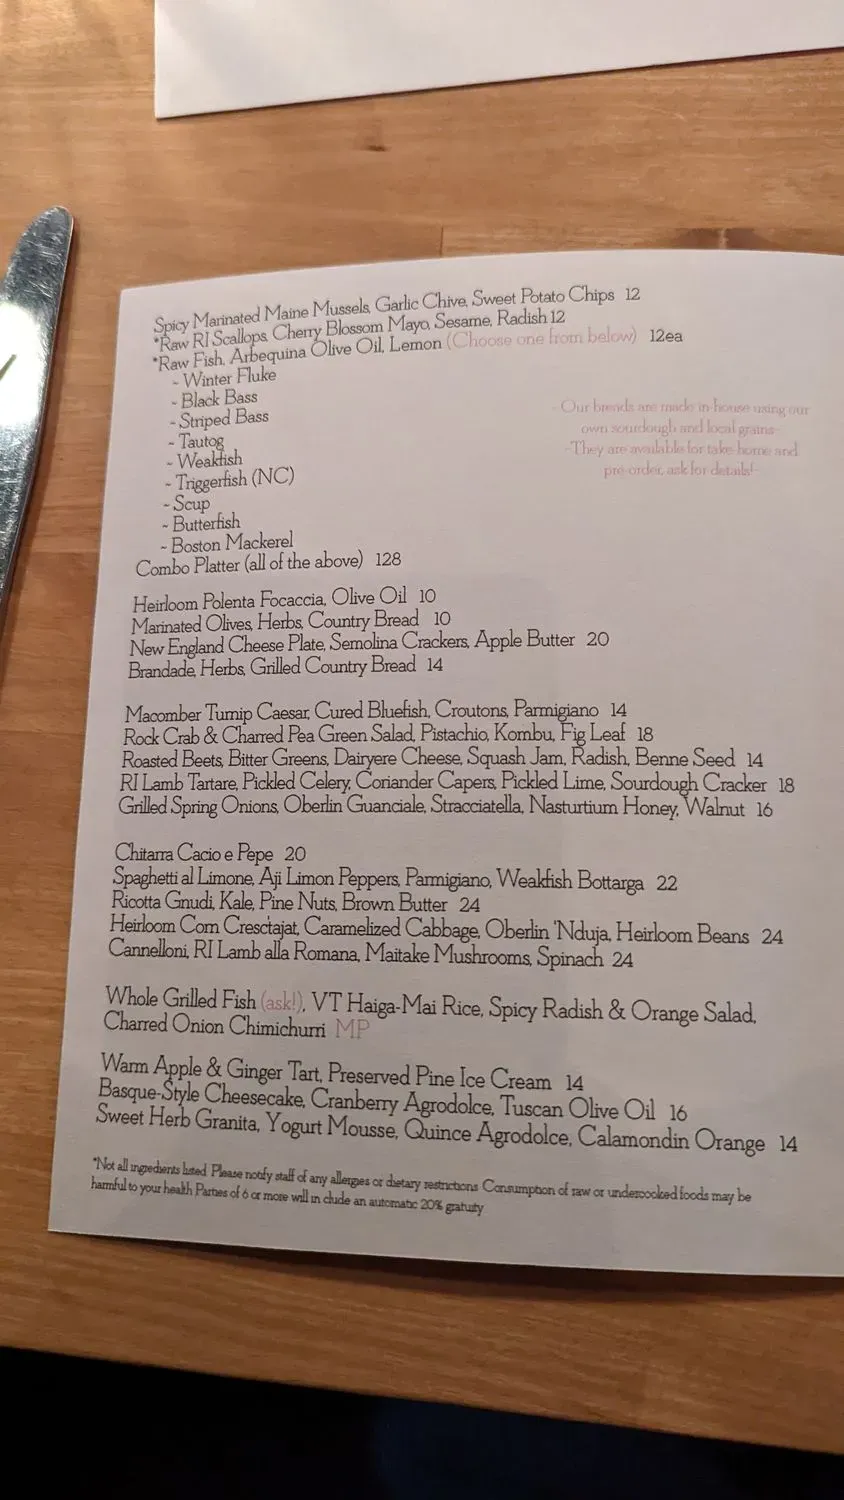 Spicy Marinated Maine Mussels, Garlic Chive, Sweet Potato Chips 12
*Raw RI Scallops, Cherry Blossom Mayo, Sesame, Radish 12
*Raw Fish, Arbequina Olive Oil, Lemon (Choose one from below) 12ea
~ Winter Fluke
~ Black Bass
~ Striped Bass
~ Tautog
~ Weakfish
~ Triggerfish (NC)
~ Scup
~ Butterfish
~ Boston Mackerel
Combo Platter (all of the above) 128
~Our breads are made in-house using our
own sourdough and local grains~
~They are available for take-home and
pre-order, ask for details!~
Heirloom Polenta Focaccia, Olive Oil 10
Marinated Olives, Herbs, Country Bread 10
New England Cheese Plate, Semolina Crackers, Apple Butter 20
Brandade, Herbs, Grilled Country Bread 14
Macomber Turnip Caesar, Cured Bluefish, Croutons, Parmigiano 14
Rock Crab & Charred Pea Green Salad, Pistachio, Kombu, Fig Leaf 18
Roasted Beets, Bitter Greens, Dairyere Cheese, Squash Jam, Radish, Benne Seed 14
RI Lamb Tartare, Pickled Celery, Coriander Capers, Pickled Lime, Sourdough Cracker 18
Grilled Spring Onions, Oberlin Guanciale, Stracciatella, Nasturtium Honey, Walnut 16
Chitarra Cacio e Pepe 20
Spaghetti al Limone, Aji Limon Peppers, Parmigiano, Weakfish Bottarga 22
Ricotta Gnudi, Kale, Pine Nuts, Brown Butter 24
Heirloom Corn Cresc'tajat, Caramelized Cabbage, Oberlin 'Nduja, Heirloom Beans 24
Cannelloni, RI Lamb alla Romana, Maitake Mushrooms, Spinach 24
Whole Grilled Fish (ask!), VT Haiga-Mai Rice, Spicy Radish & Orange Salad,
Charred Onion Chimichurri MP
Warm Apple & Ginger Tart, Preserved Pine Ice Cream 14
Basque-Style Cheesecake, Cranberry Agrodolce, Tuscan Olive Oil 16
Sweet Herb Granita, Yogurt Mousse, Quince Agrodolce, Calamondin Orange 14
*Not all ingredients listed. Please notify staff of any allergies or dietary restrictions. Consumption of raw or undercooked foods may be
harmful to your health. Parties of 6 or more will in clude an automatic 20% gratuity